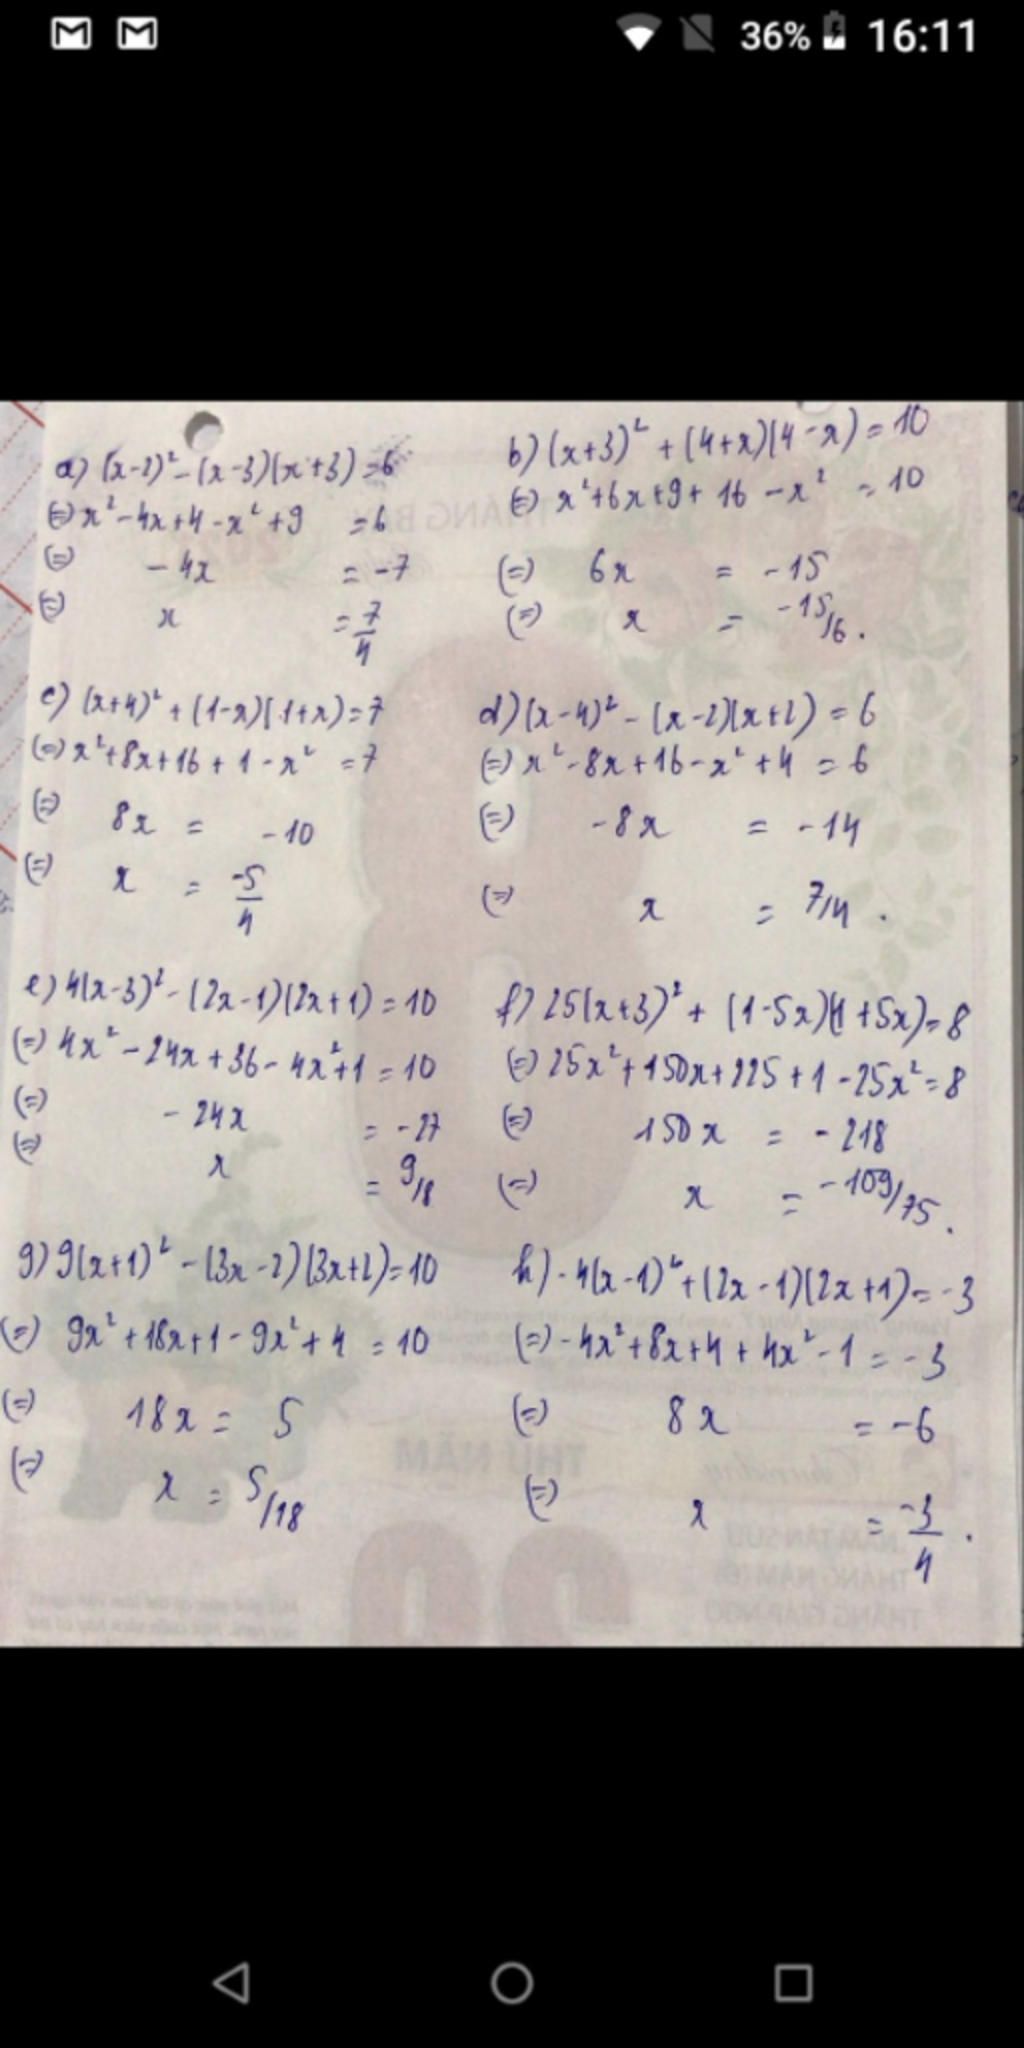 36% 16:11
a) (x-2)² - (x-3)(x+3) = 6
(=) x² - 4x + 4 - x² + 9 = 6
(=) - 4x = -7
(=) x = 7/4
b) (x+3)² + (4+x)(4-x) = 10
(=) x² + 6x + 9 + 16 - x² = 10
(=) 6x = -15
(=) x = -15/6.
c) (x+4)² + (1-x)(1+x) = 7
(=) x² + 8x + 16 + 1 - x² = 7
(=) 8x = -10
(=) x = -5/4
d) (x-4)² - (x-2)(x+2) = 6
(=) x² - 8x + 16 - x² + 4 = 6
(=) -8x = -14
(=) x = 7/4.
e) 4(x-3)² - (2x-1)(2x+1) = 10
(=) 4x² - 24x + 36 - 4x² + 1 = 10
(=) - 24x = -27
(=) x = 9/8
f) 25(x+3)² + (1-5x)(1+5x) = 8
(=) 25x² + 150x + 225 + 1 - 25x² = 8
(=) 150x = -218
(=) x = -109/75.
g) 9(x+1)² - (3x-2)(3x+2) = 10
(=) 9x² + 18x + 1 - 9x² + 4 = 10
(=) 18x = 5
(=) x = 5/18
h) -4(x-1)² + (2x-1)(2x+1) = -3
(=) -4x² + 8x + 4 + 4x² - 1 = -3
(=) 8x = -6
(=) x = -3/4.